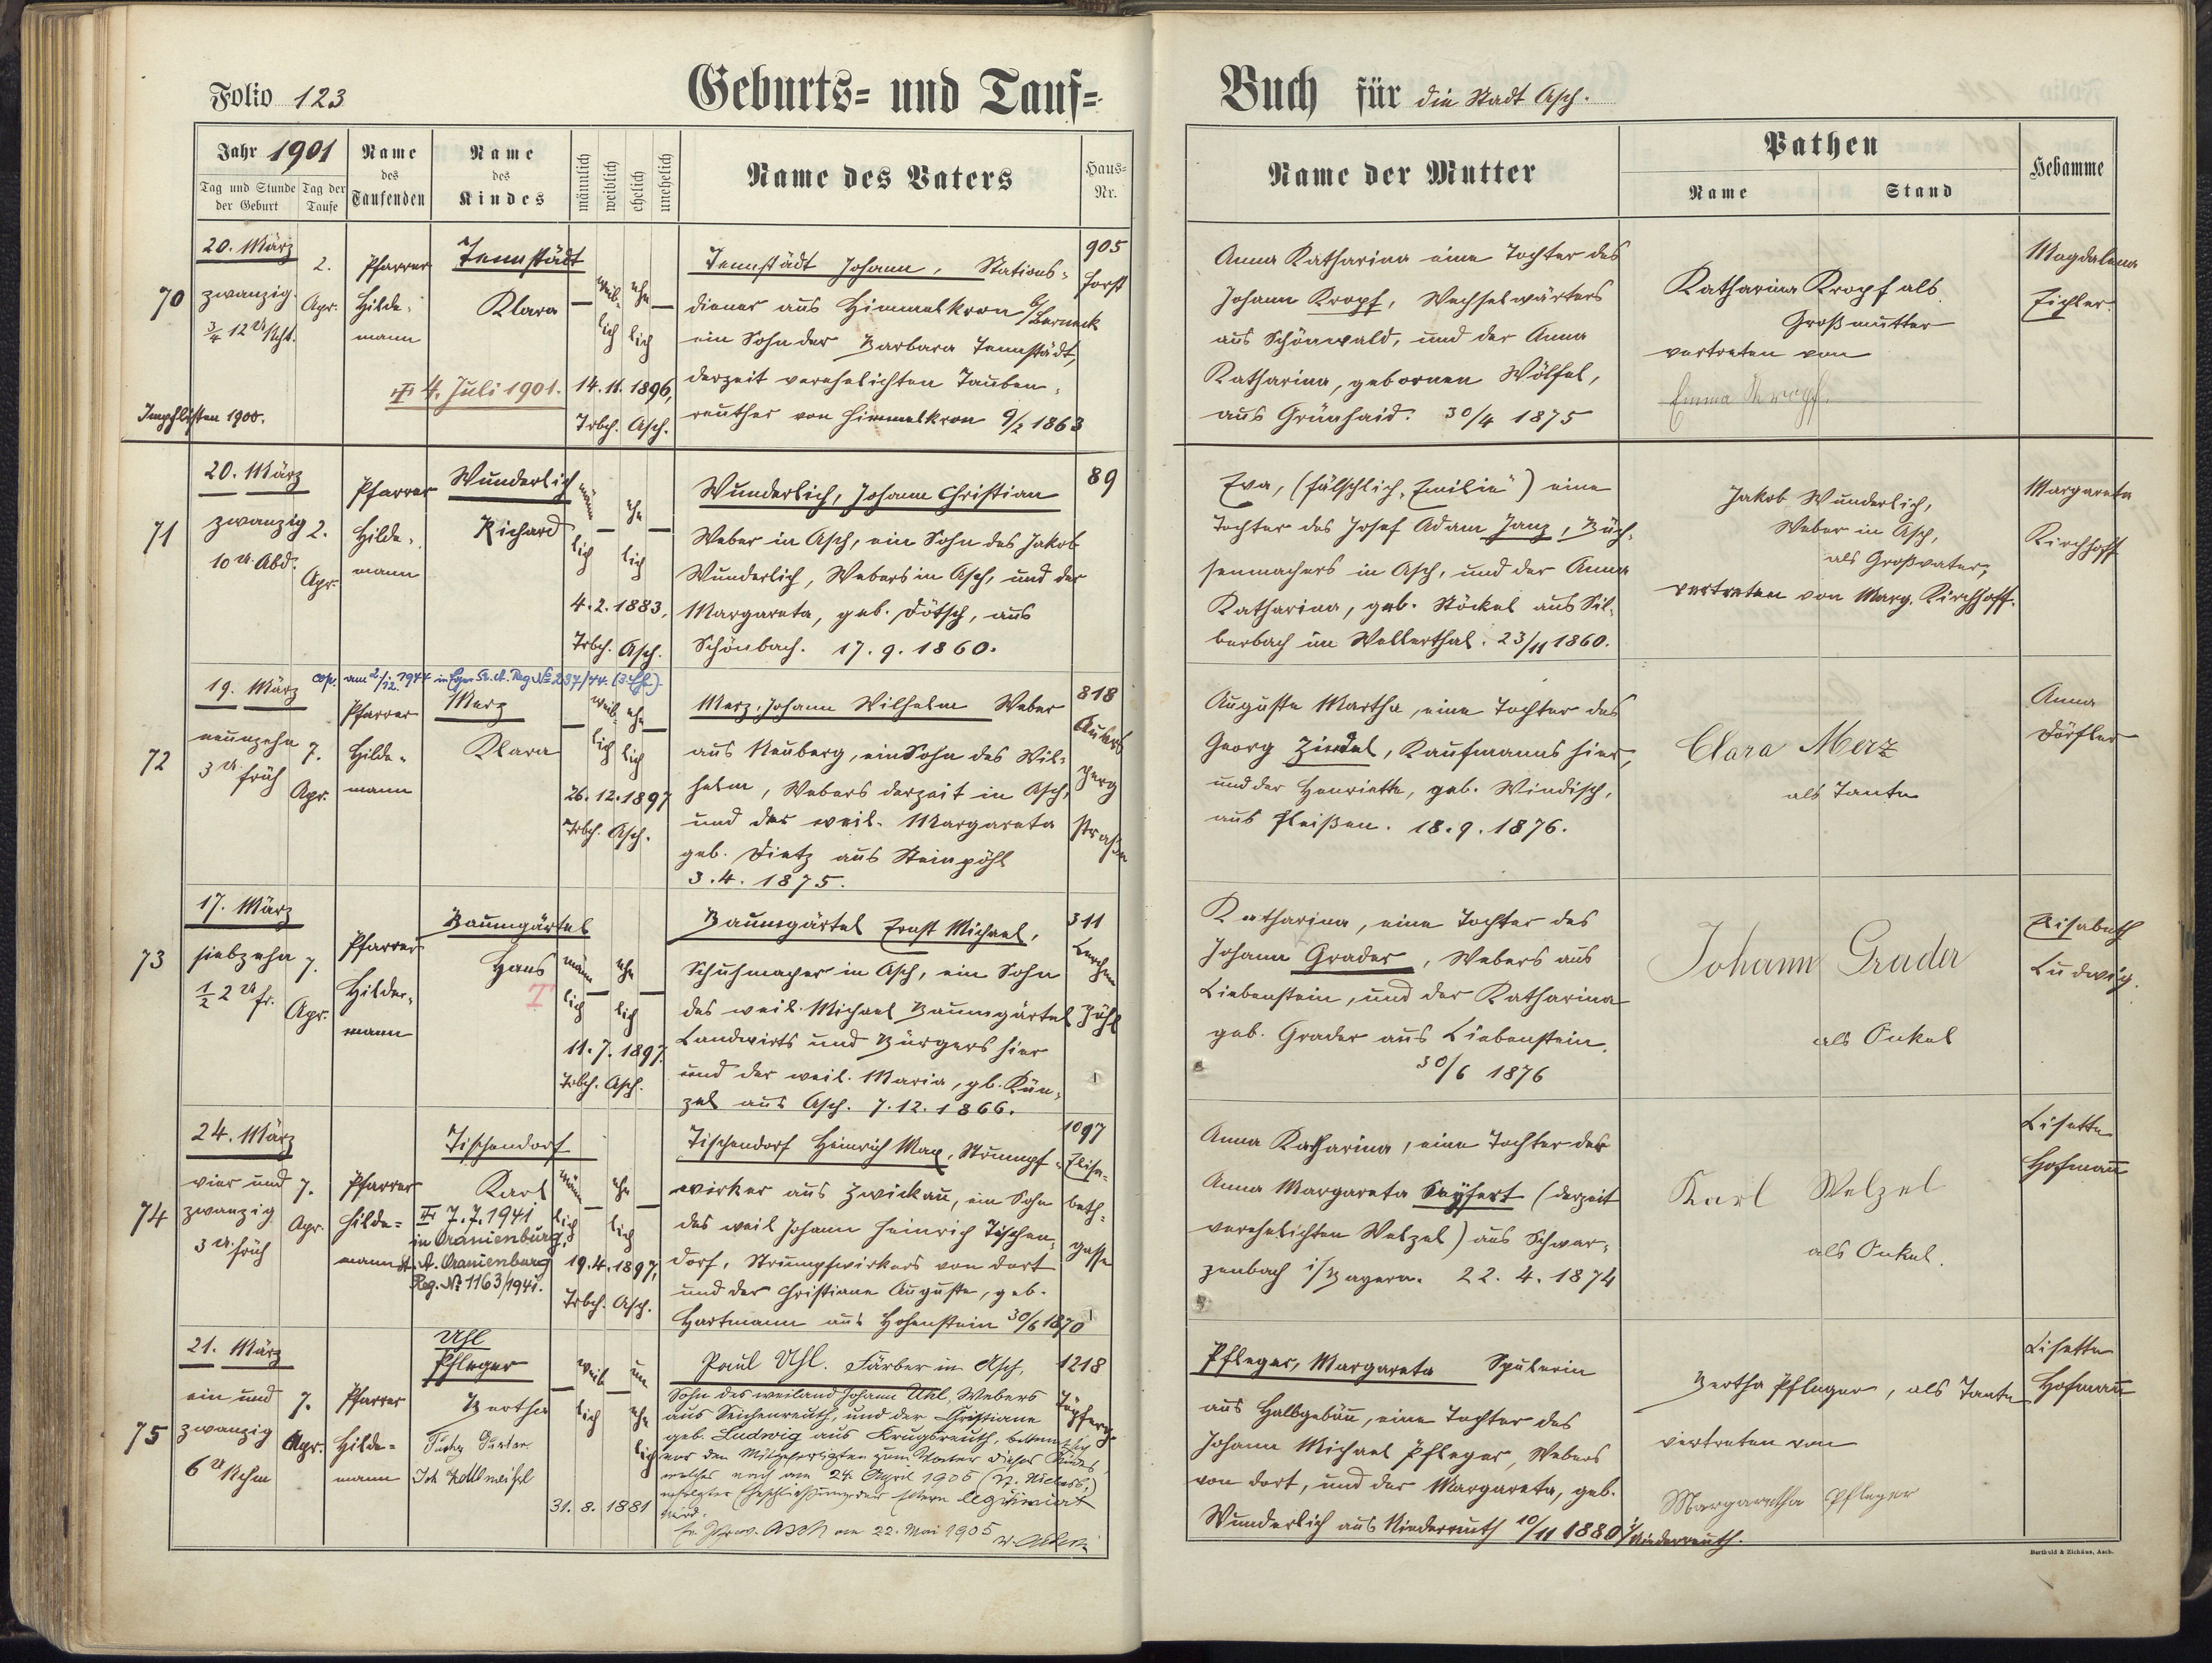 Folio 123
Geburts- und Tauf-
Buch für die Stadt Asch.
Jahr 1901
Tag und Stunde der Geburt
Tag der Taufe
Name des Taufenden
Name des Kindes
männlich
weiblich
ehelich
unehelich
Name des Vaters
Haus-Nr.
Name der Mutter
Pathen
Name
Stand
Hebamme
70
20. März
zwanzig
3/4 12 U Nchts.
2.
Apr.
Pfarrer
Hilde-
mann
Tennstädt
Klara
weib-
lich
ehe
lich
14. 11. 1896,
Trbch. Asch.
4. Juli 1901.
Impflisten 1900.
Tennstädt Johann, Stations-
diener aus Himmelkron b/Berneck
ein Sohn der Barbara Tennstädt,
derzeit verehelichten Tauben-
reuther von Himmelkron 9/2 1863
905
Forst
Anna Katharina eine Tochter des
Johann Kropf, Wechselwärters
aus Schönwald, und der Anna
Katharina, gebornen Wölfel,
aus Grünhaid. 30/4 1875
Katharina Kropf als
Großmutter
vertreten von
Emma Kropf.
Magdalena
Eichler.
71
20. März
zwanzig
10 U. Abd.
2.
Apr.
Pfarrer
Hilde-
mann
Wunderlich
Richard
männ
lich
ehe
lich
4. 2. 1883,
Trbch. Asch.
Wunderlich, Johann Christian
Weber in Asch, ein Sohn des Jakob
Wunderlich, Webers in Asch, und der
Margareta, geb. Dötsch, aus
Schönbach. 17. 9. 1860.
89
Eva, (fälschlich "Emilie") eine
Tochter des Josef Adam Janz, Büch-
senmachers in Asch, und der Anna
Katharina, geb. Stöckel aus Sil-
berbach im Wellerthal. 23/11 1860.
Jakob Wunderlich,
Weber in Asch,
als Großvater,
vertreten von Marg. Kirchhoff.
Margareta
Kirchhoff
72
19. März
neunzehn
3 U. früh
7.
Apr.
cop. am 2/12. 1944 in Eger St. A. Reg No 237/44. (3. Ehe).
Pfarrer
Hilde-
mann
Merz
Klara
weib
lich
ehe
lich
26. 12. 1897
Trbch. Asch.
Merz, Johann Wilhelm Weber
aus Neuberg, ein Sohn des Wil-
helm, Webers derzeit in Asch,
und der weil. Margareta
geb. Dietz aus Steinpöhl
3. 4. 1875.
818
berg
straße
Auguste Martha, eine Tochter des
Georg Zindel, Kaufmanns hier,
und der Henriette, geb. Windisch,
aus Fleißen. 18. 9. 1876.
Clara Merz
als Tante
Anna
Dörfler
73
17. März
siebzehn
1/2 2 U fr.
7.
Apr.
Pfarrer
Hilde-
mann
Baumgärtel
Hans
T
männ
lich
ehe
lich
11. 7. 1897.
Trbch. Asch.
Baumgärtel Ernst Michael,
Schuhmacher in Asch, ein Sohn
des weil. Michael Baumgärtel
Landwirts und Bürgers hier
und der weil. Maria, gb. Kün-
zel aus Asch. 7. 12. 1866.
311
Lerchen
pöhl
Katharina, eine Tochter des
Johann Grader, Webers aus
Liebenstein, und der Katharina
geb. Grader aus Liebenstein.
30/6 1876
Johann Grader
als Onkel
Elisabeth
Ludwig.
74
24. März
vier und
zwanzig
3 U. früh
7.
Apr.
Pfarrer
Hilde-
mann
Tischendorf
Karl
7. 7. 1941
in Oranienburg,
St. A. Oranienburg
Reg. No 1163/1941.
männ
lich
ehe
lich
19. 4. 1897,
Trbch. Asch.
Tischendorf Heinrich Max, Strumpf-
wirker aus Zwickau, ein Sohn
des weil Johann Heinrich Tischen-
dorf, Strumpfwirkers von dort
und der Christiane Auguste, geb.
Hartmann aus Hohenstein 30/6 1870
1097
Elisa-
beth-
gasse
Anna Katharina, eine Tochter der
Anna Margareta Seyfert (derzeit
verehelichten Welzel) aus Schwar-
zenbach i/Bayern. 22. 4. 1874
Karl Welzel
als Onkel.
Lisette
Hofmann
75
21. März
ein und
zwanzig
6 U Nchm
7.
Apr.
Pfarrer
Hilde-
mann
Uhl
Pfleger
Bertha
weib
lich
un
ehe
lich
31. 8. 1881
Paul Uhl. Färber in Asch,
Sohn des weiland Johann Uhl, Webers
aus Seichenreuth, und der Christiane
geb. Ludwig aus Krugsreuth, bekennt sich
vor den Mitgefertigten zum Vater dieses Kindes,
welches nach am 24. April 1905
erfolgter Eheschließung der Eltern legitimiert
wird.
Asch am 22. Mai 1905
1218
Pfleger, Margareta Spulerin
aus Halbgebäu, eine Tochter des
Johann Michael Pfleger, Webers
von dort, und der Margareta, geb.
Wunderlich aus Niederreuth 10/11 1880 i/Niederreuth.
Bertha Pfleger, als Tante
vertreten von
Margaretha Pfleger
Lisette
Hofmann
Berthold & Zichäus, Asch.